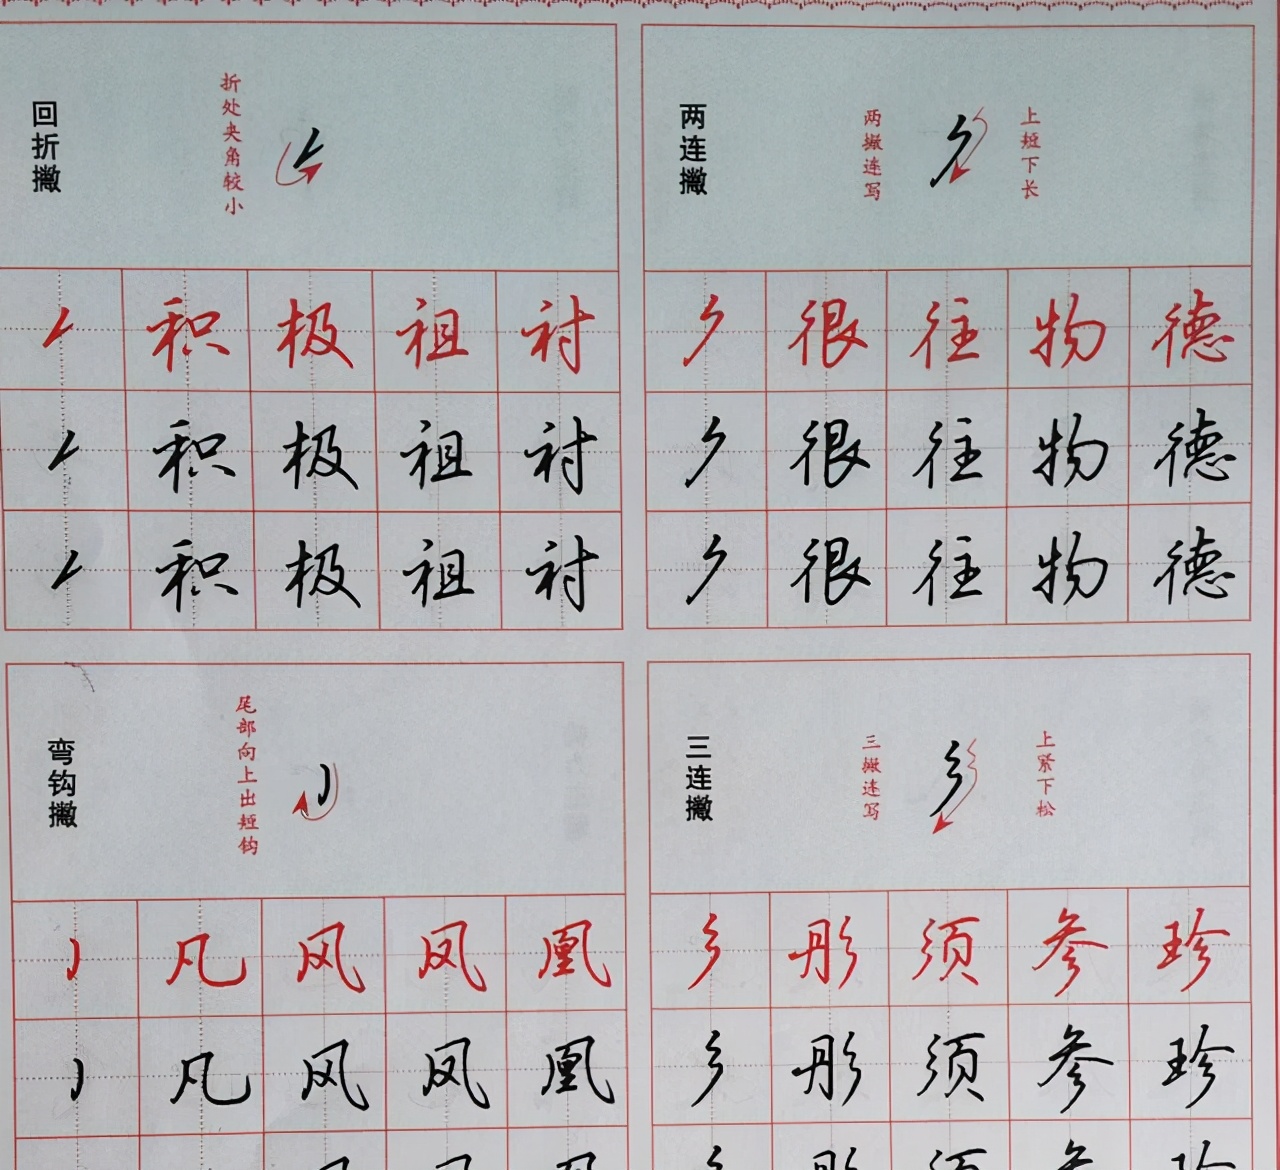 回折撇
折处夹角较小
积 极 祖 衬
积 极 祖 衬
积 极 祖 衬
两连撇
两撇连写
上短下长
很 往 物 德
很 往 物 德
很 往 物 德
弯钩撇
尾部向上出短钩
凡 风 凤 凰
凡 风 凤 凰
三连撇
三撇连写
上紧下松
彤 须 参 珍
彤 须 参 珍